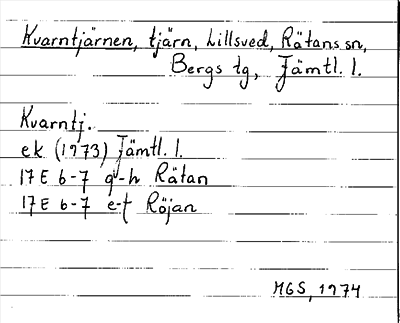 Kvarntjärnen, tjärn, Lillsved, Rätans sn,
Bergs tg, Jämtl. l.
Kvarntj.
ek (1973) Jämtl. l.
17E 6-7 g-h Rätan
17E 6-7 e-f Röjan
MGS, 1974